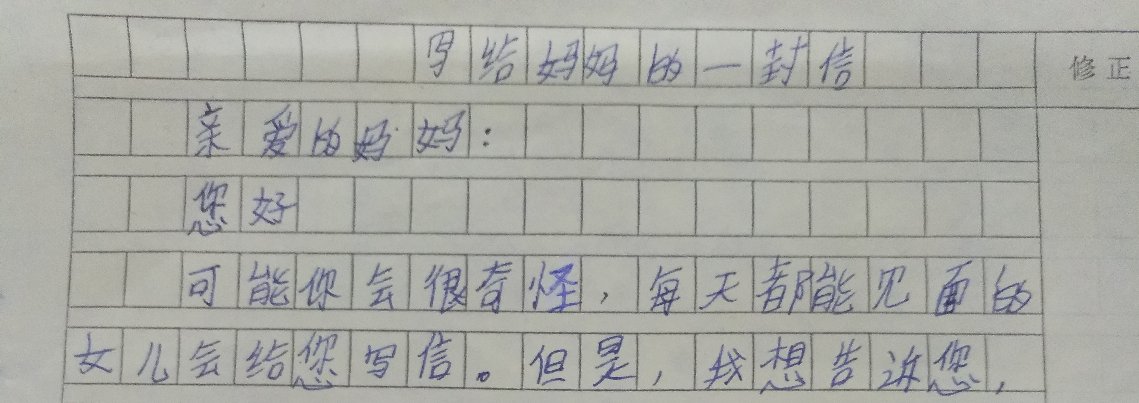 写给妈妈的一封信
修正
亲爱的妈妈：
您好
可能你会很奇怪，每天都能见面的
女儿会给您写信。但是，我想告诉您，